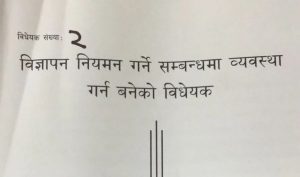 विधेयक संख्या: २
विज्ञापन नियमन गर्ने सम्बन्धमा व्यवस्था
गर्न बनेको विधेयक